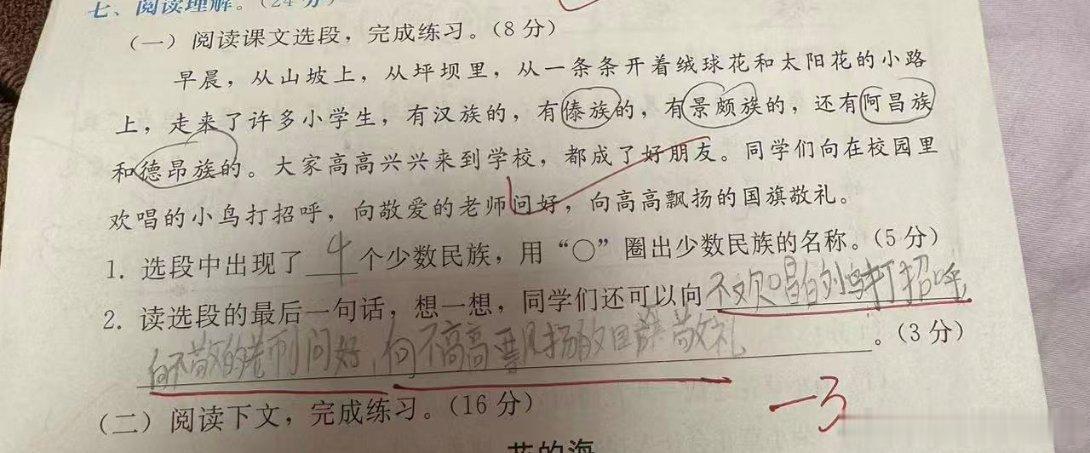 七、阅读理解。（24分）
（一）阅读课文选段，完成练习。（8分）
早晨，从山坡上，从坪坝里，从一条条开着绒球花和太阳花的小路
上，走来了许多小学生，有汉族的，有傣族的，有景颇族的，还有阿昌族
和德昂族的。大家高高兴兴来到学校，都成了好朋友。同学们向在校园里
欢唱的小鸟打招呼，向敬爱的老师问好，向高高飘扬的国旗敬礼。
1. 选段中出现了 4 个少数民族，用“○”圈出少数民族的名称。（5分）
2. 读选段的最后一句话，想一想，同学们还可以向不欢唱的小鸟打招呼，
向不敬的老师问好，向不高高飘扬的国旗敬礼。（3分）
-3
（二）阅读下文，完成练习。（16分）
花的海